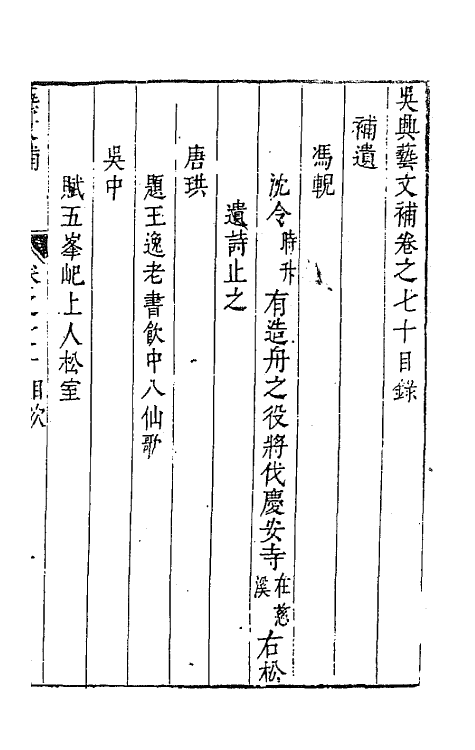 吳興藝文補卷之七十目錄
補遺
馮輗
沈令時升有造舟之役將伐慶安寺在慈溪右松
遺詩止之
唐珙
題王逸老書飲中八仙歌
吳中
賦五峯屺上人松室
藝文補 卷之七十 目次